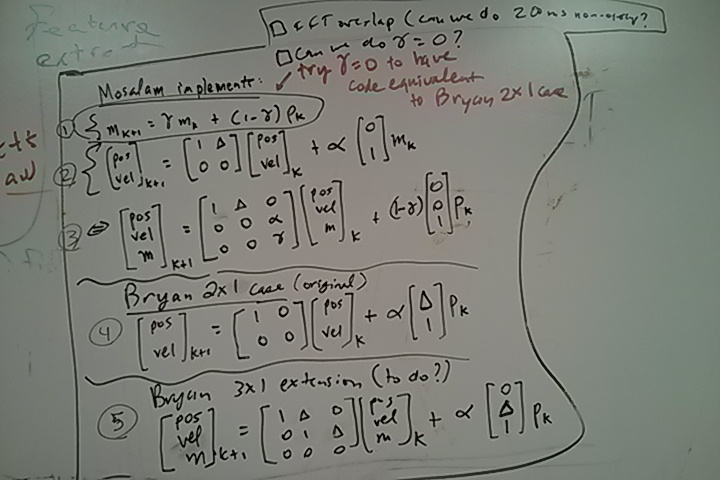 Feature
extract
□ EFT overlap (can we do 200ms non-overlap?
□ Can we do γ = 0?
try γ=0 to have
code equivalent
to Bryan 2x1 case
Mosalam implements:
① { m_{k+1} = γ m_k + (1-γ) P_k
② { [pos vel]_{k+1} = [1 Δ; 0 0] [pos vel]_k + α [0 1] m_k
③ ⇔ [pos vel m]_{k+1} = [1 Δ 0; 0 0 α; 0 0 γ] [pos vel m]_k + (1-γ) [0 0 1] P_k
Bryan 2x1 case (original)
④ [pos vel]_{k+1} = [1 0; 0 0] [pos vel]_k + α [Δ 1] P_k
Bryan 3x1 extension (to do?)
⑤ [pos vel m]_{k+1} = [1 Δ 0; 0 1 Δ; 0 0 0] [pos vel m]_k + α [0 Δ 1] P_k